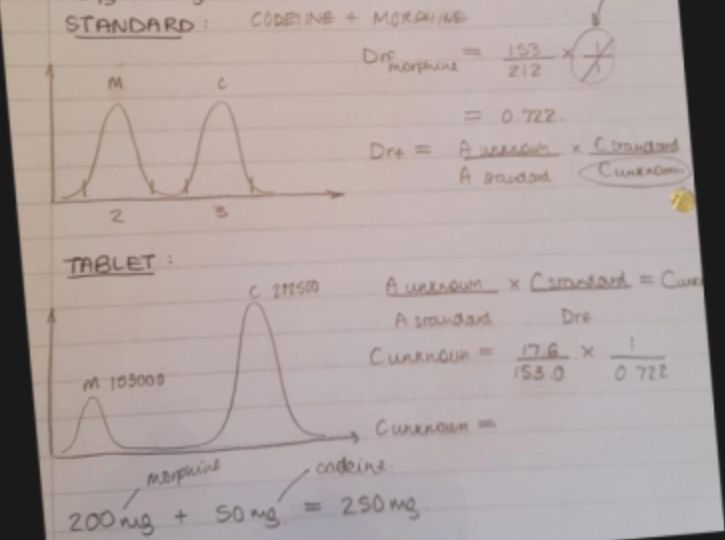 STANDARD: CODEINE + MORPHINE
Drf morphine = 153/212 × 1/1
= 0.722.
M C
Drf = A unknown/A standard × C standard/C unknown
2 3
TABLET:
C 212500
A unknown/A standard × C standard/Drf =
M 153000
C unknown = 17.6/153.0 × 1/0.722
C unknown =
morphine codeine
200mg + 50mg = 250mg.